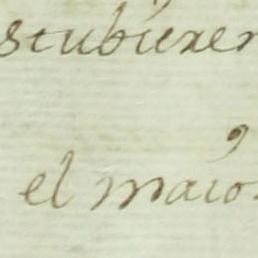 stubierer
el maio